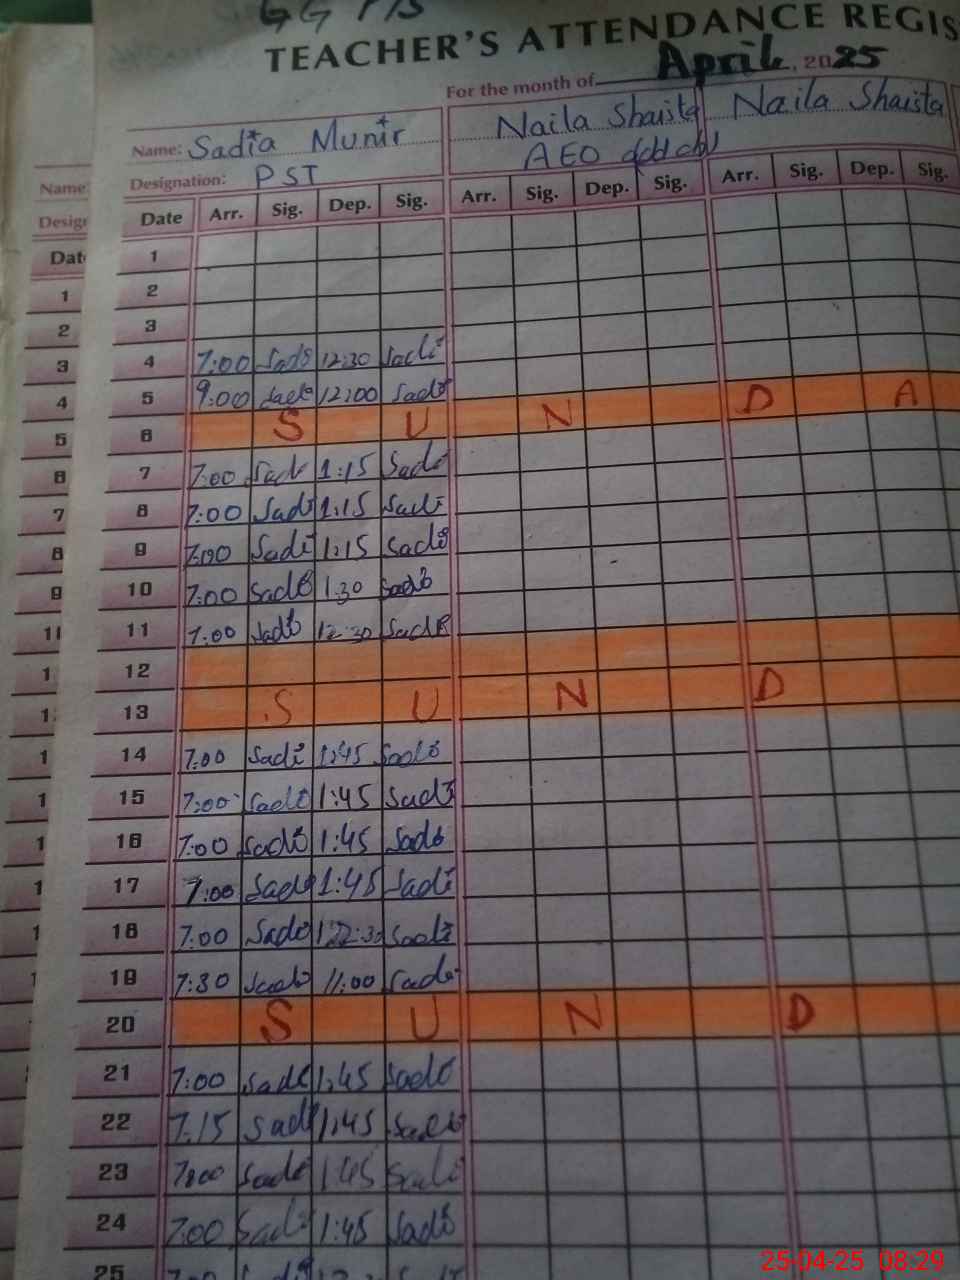 TEACHER'S ATTENDANCE REGIS
For the month of April, 2025
Name: Sadia Munir Naila Shaista Naila Shaista
Designation: PST AEO
Date Arr. Sig. Dep. Sig. Arr. Sig. Dep. Sig. Arr. Sig. Dep. Sig.
1
2
3
4 7:00 Sadi 12:30 Sadi
5 9:00 Sadi 12:00 Sadi
6 S U N D A
7 7:00 Sadi 1:15 Sadi
8 7:00 Sadi 1:15 Sadi
9 7:00 Sadi 1:15 Sadi
10 7:00 Sadi 1:30 Sadi
11 7:00 Sadi 12:30 Sadi
12
13 S U N D
14 7:00 Sadi 1:45 Sadi
15 7:00 Sadi 1:45 Sadi
16 7:00 Sadi 1:45 Sadi
17 7:00 Sadi 1:45 Sadi
18 7:00 Sadi 12:30 Sadi
19 7:30 Sadi 11:00 Sadi
20 S U N D
21 7:00 Sadi 1:45 Sadi
22 7:15 Sadi 1:45 Sadi
23 7:00 Sadi 1:45 Sadi
24 7:00 Sadi 1:45 Sadi
25
25-04-25 08:29